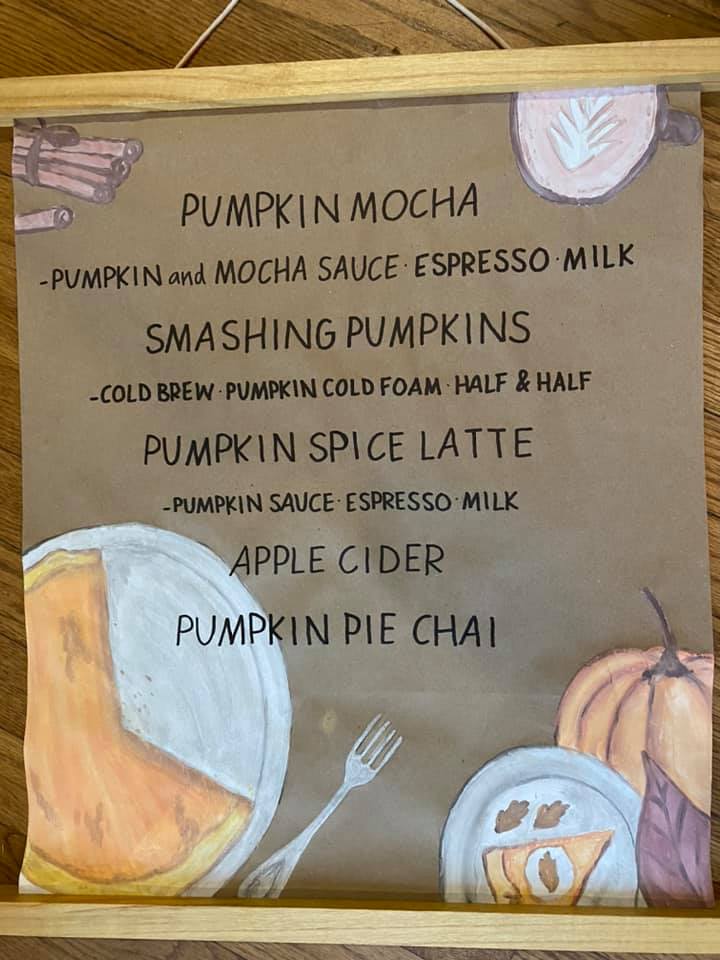 PUMPKIN MOCHA
-PUMPKIN and MOCHA SAUCE · ESPRESSO · MILK
SMASHING PUMPKINS
-COLD BREW · PUMPKIN COLD FOAM · HALF & HALF
PUMPKIN SPICE LATTE
-PUMPKIN SAUCE · ESPRESSO · MILK
APPLE CIDER
PUMPKIN PIE CHAI